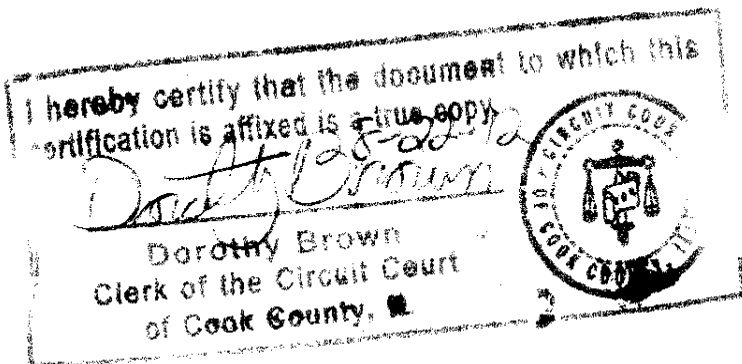 I hereby certify that the document to which this
certification is affixed is a true copy.
8-22-12
Dorothy Brown
Dorothy Brown
Clerk of the Circuit Court
of Cook County, IL
CIRCUIT COOK
COOK COUNTY, ILL